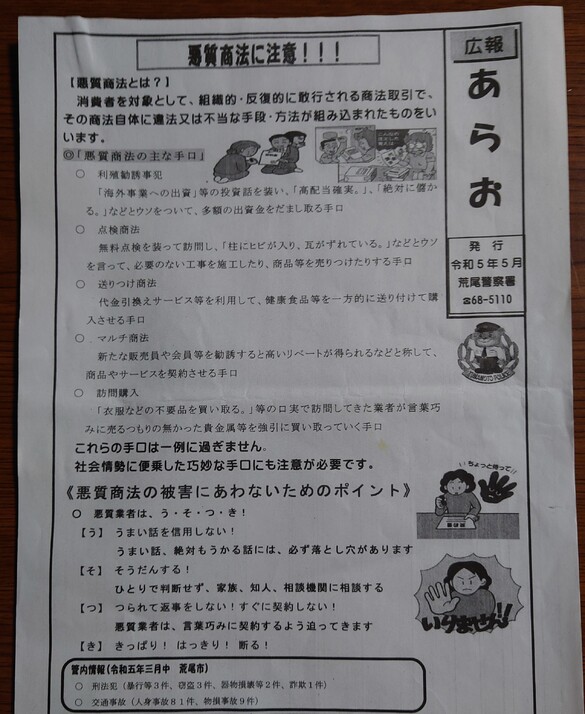 悪質商法に注意！！！
【悪質商法とは？】
消費者を対象として、組織的・反復的に敢行される商法取引で、
その商法自体に違法又は不当な手段・方法が組み込まれたものをい
います。
◎「悪質商法の主な手口」
○ 利殖勧誘事犯
「海外事業への出資」等の投資話を装い、「高配当確実。」、「絶対に儲か
る。」などとウソをついて、多額の出資金をだまし取る手口
○ 点検商法
無料点検を装って訪問し、「柱にヒビが入り、瓦がずれている。」などとウソ
を言って、必要のない工事を施工したり、商品等を売りつけたりする手口
○ 送りつけ商法
代金引換えサービス等を利用して、健康食品等を一方的に送り付けて購
入させる手口
○ マルチ商法
新たな販売員や会員等を勧誘すると高いリベートが得られるなどと称して、
商品やサービスを契約させる手口
○ 訪問購入
「衣服などの不要品を買い取る。」等の口実で訪問してきた業者が言葉巧
みに売るつもりの無かった貴金属等を強引に買い取っていく手口
これらの手口は一例に過ぎません。
社会情勢に便乗した巧妙な手口にも注意が必要です。
《悪質商法の被害にあわないためのポイント》
○ 悪質業者は、う・そ・つ・き！
【う】 うまい話を信用しない！
うまい話、絶対もうかる話には、必ず落とし穴があります
【そ】 そうだんする！
ひとりで判断せず、家族、知人、相談機関に相談する
【つ】 つられて返事をしない！すぐに契約しない！
悪質業者は、言葉巧みに契約するよう迫ってきます
【き】 きっぱり！ はっきり！ 断る！
管内情報（令和五年三月中 荒尾市）
○ 刑法犯（暴行等３件、窃盗３件、器物損壊等２件、詐欺１件）
○ 交通事故（人身事故８１件、物損事故９件）
広報
あらお
発行
令和５年５月
荒尾警察署
☎68-5110
KUMAMOTO POLICE
!!ちょっと待って!!
契約書
いりません!!